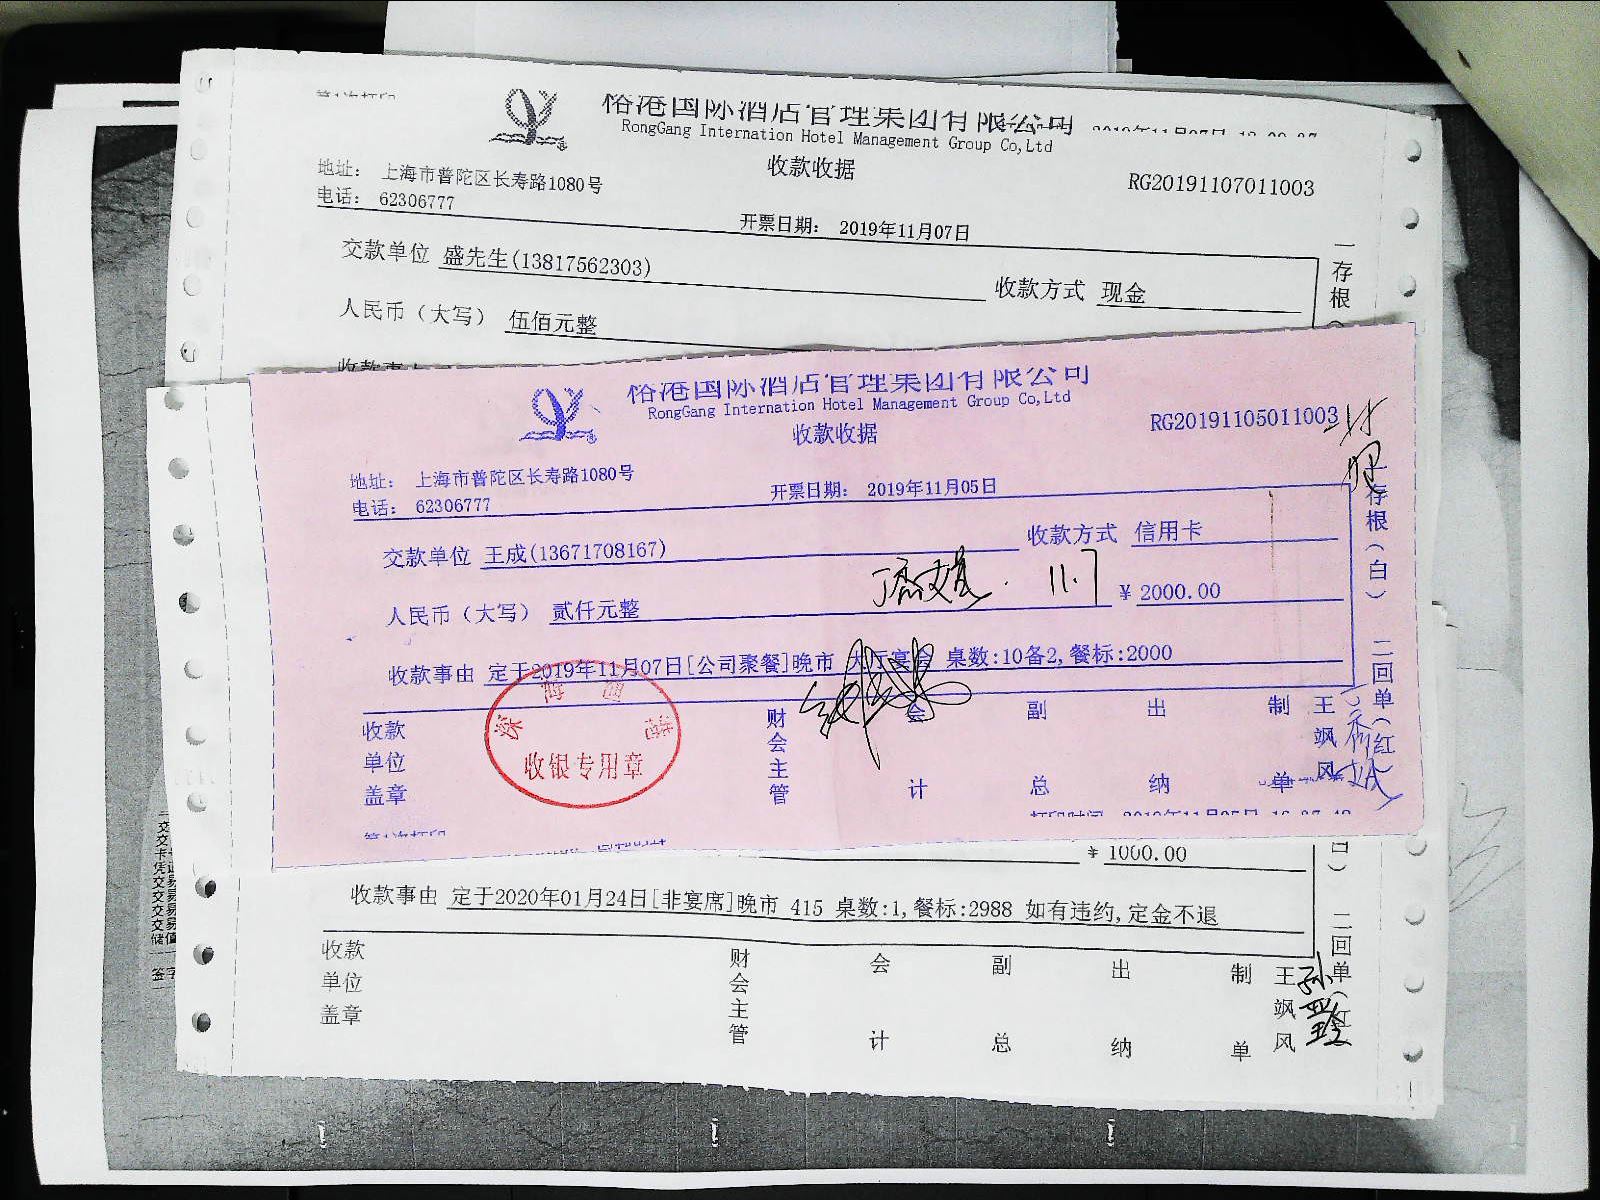 第1次打印
裕港国际酒店管理集团有限公司
RongGang Internation Hotel Management Group Co,Ltd
收款收据
地址： 上海市普陀区长寿路1080号
电话： 62306777
RG20191107011003
开票日期： 2019年11月07日
交款单位 盛先生(13817562303)
收款方式 现金
人民币（大写） 伍佰元整
一存根（
裕港国际酒店管理集团有限公司
RongGang Internation Hotel Management Group Co,Ltd
收款收据
RG20191105011003
地址： 上海市普陀区长寿路1080号
电话： 62306777
开票日期： 2019年11月05日
交款单位 王成(13671708167)
收款方式 信用卡
人民币（大写） 贰仟元整
11.7
￥ 2000.00
收款事由 定于2019年11月07日[公司聚餐]晚市 大厅宴 桌数:10备2,餐标:2000
收款单位盖章
收银专用章
财会主管
会计
副总
出纳
制单
王飒风
存根（白） 二回单（红
第1次打印
打印时间
￥ 1000.00
收款事由 定于2020年01月24日[非宴席]晚市 415 桌数:1,餐标:2988 如有违约,定金不退
收款单位盖章
财会主管
会计
副总
出纳
制单
王飒风
白） 二回单（红